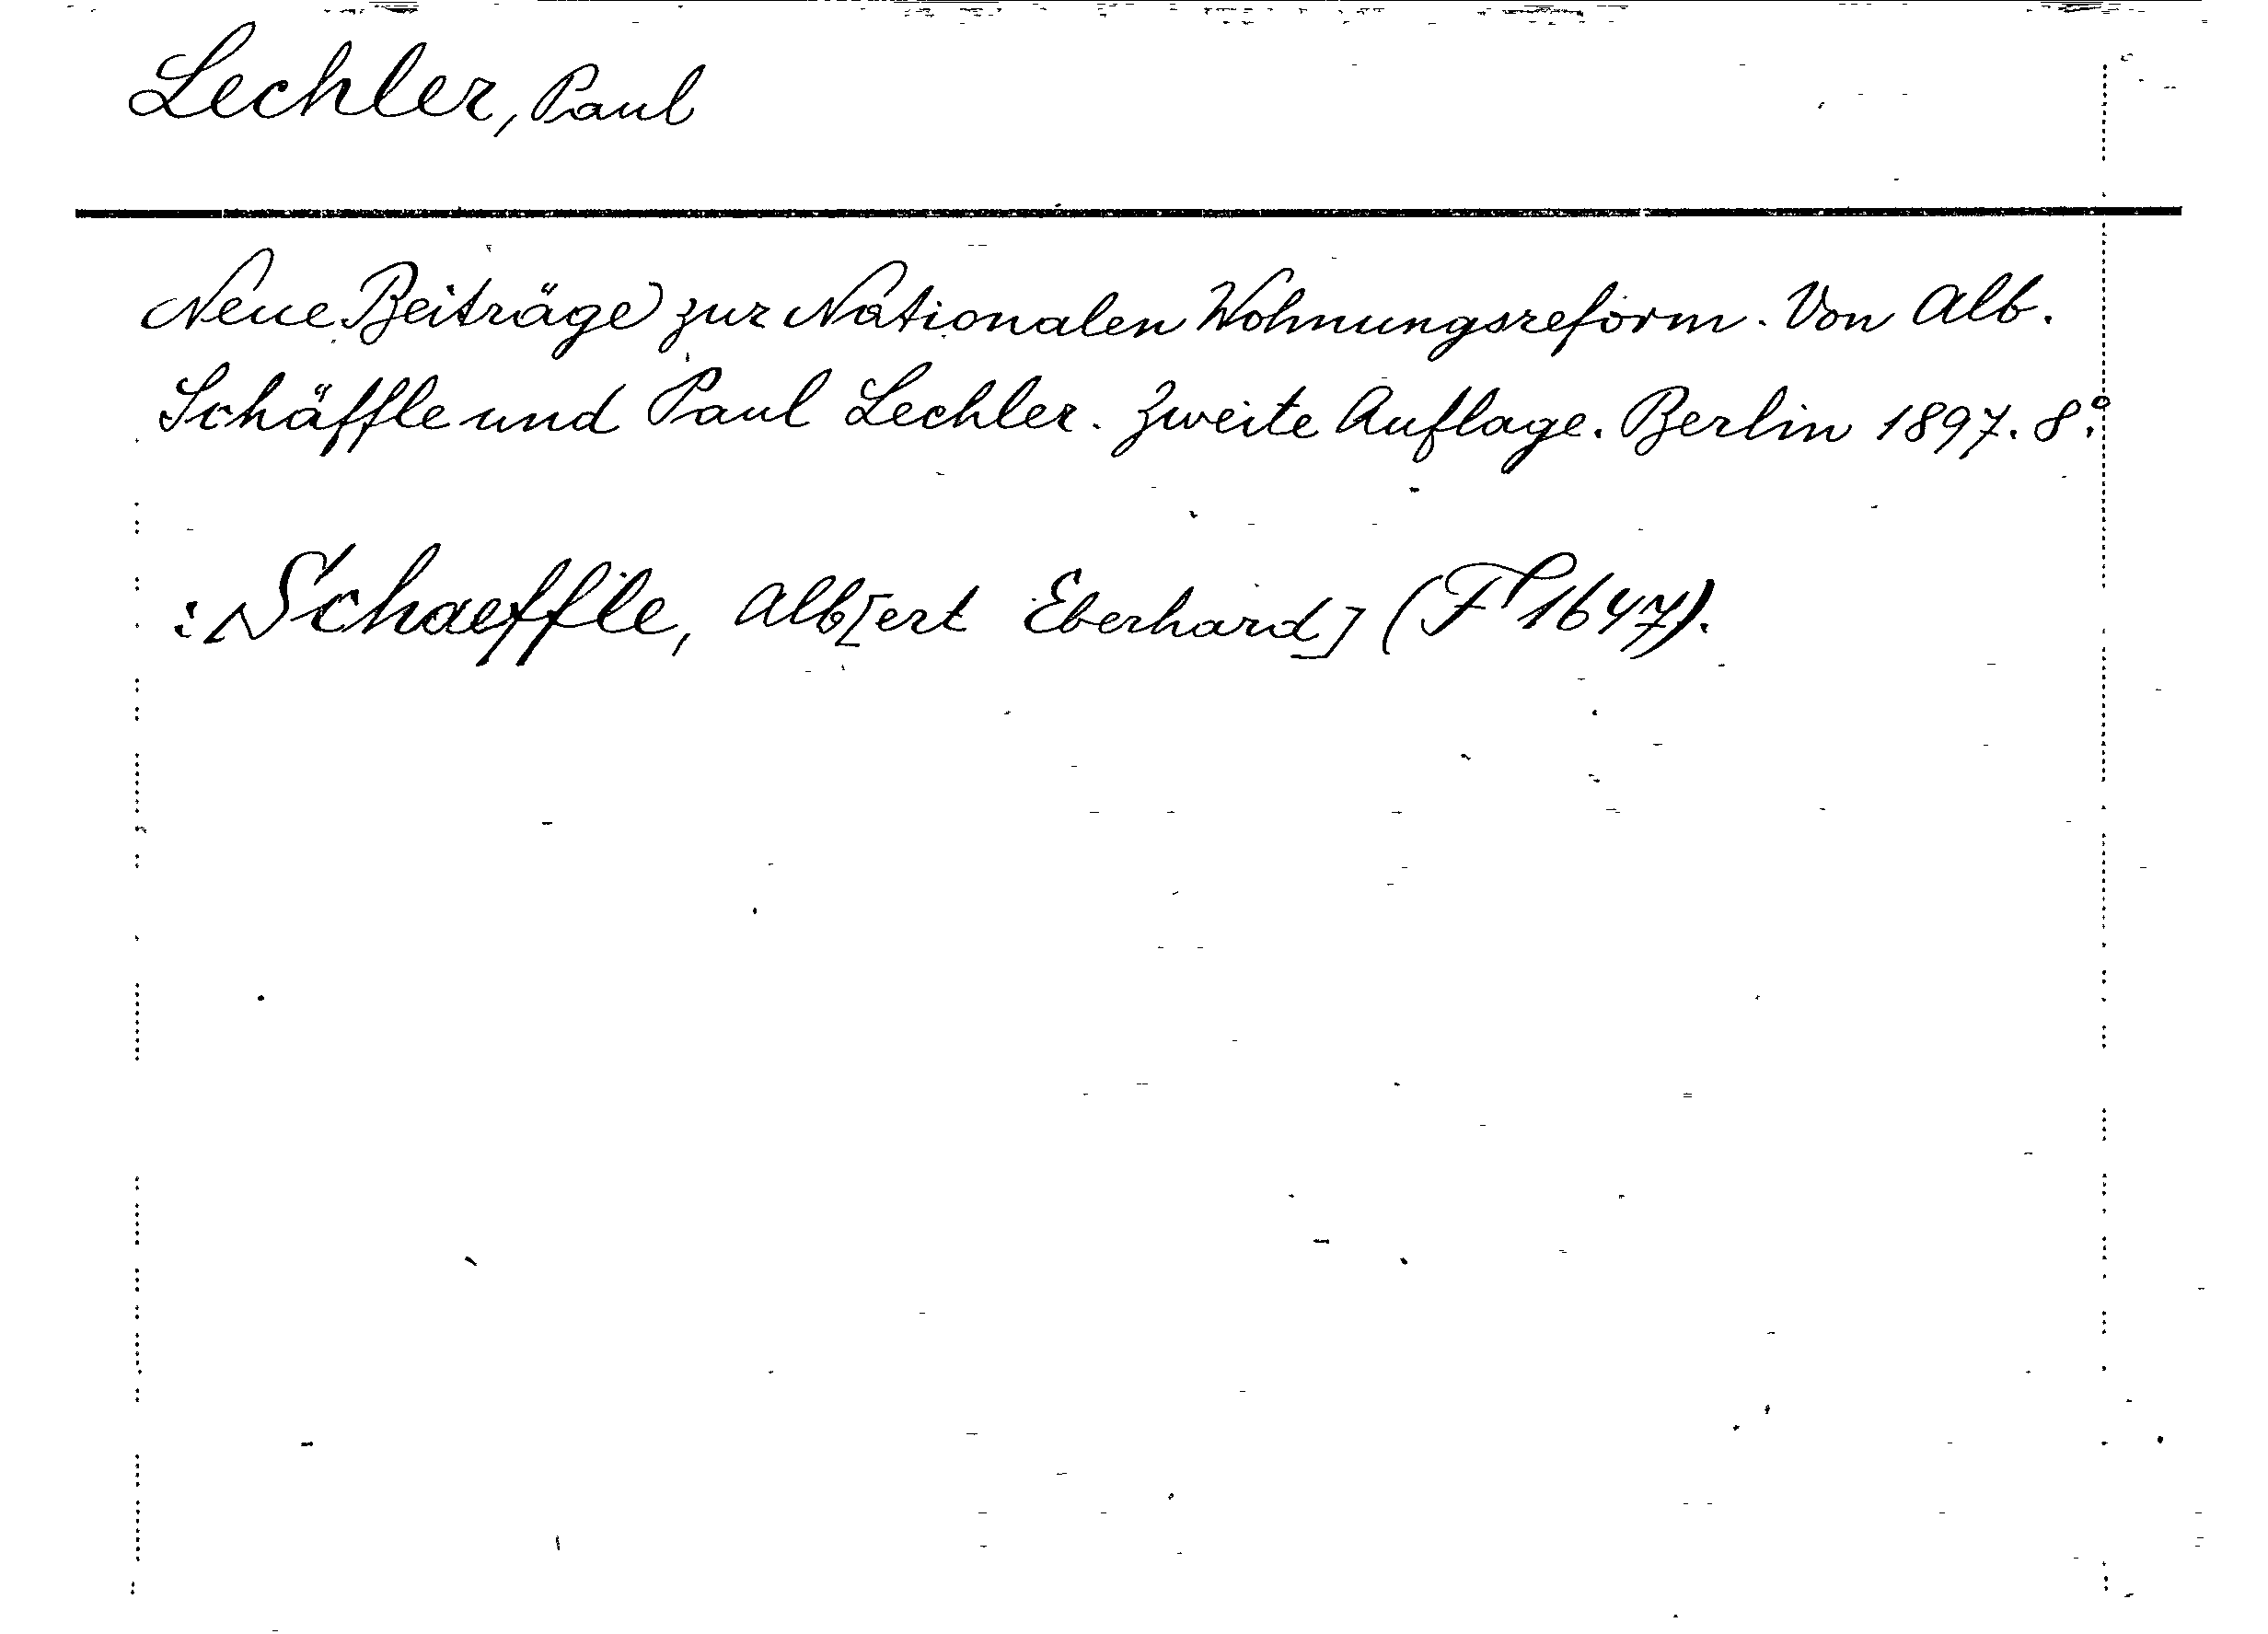 Lechler, Paul
Neue Beiträge zur Nationalen Wohnungsreform. Von Alb.
Schäffle und Paul Lechler. Zweite Auflage. Berlin 1897. 8°.
: Schaeffle, Alb[ert Eberhard] (F 1647).